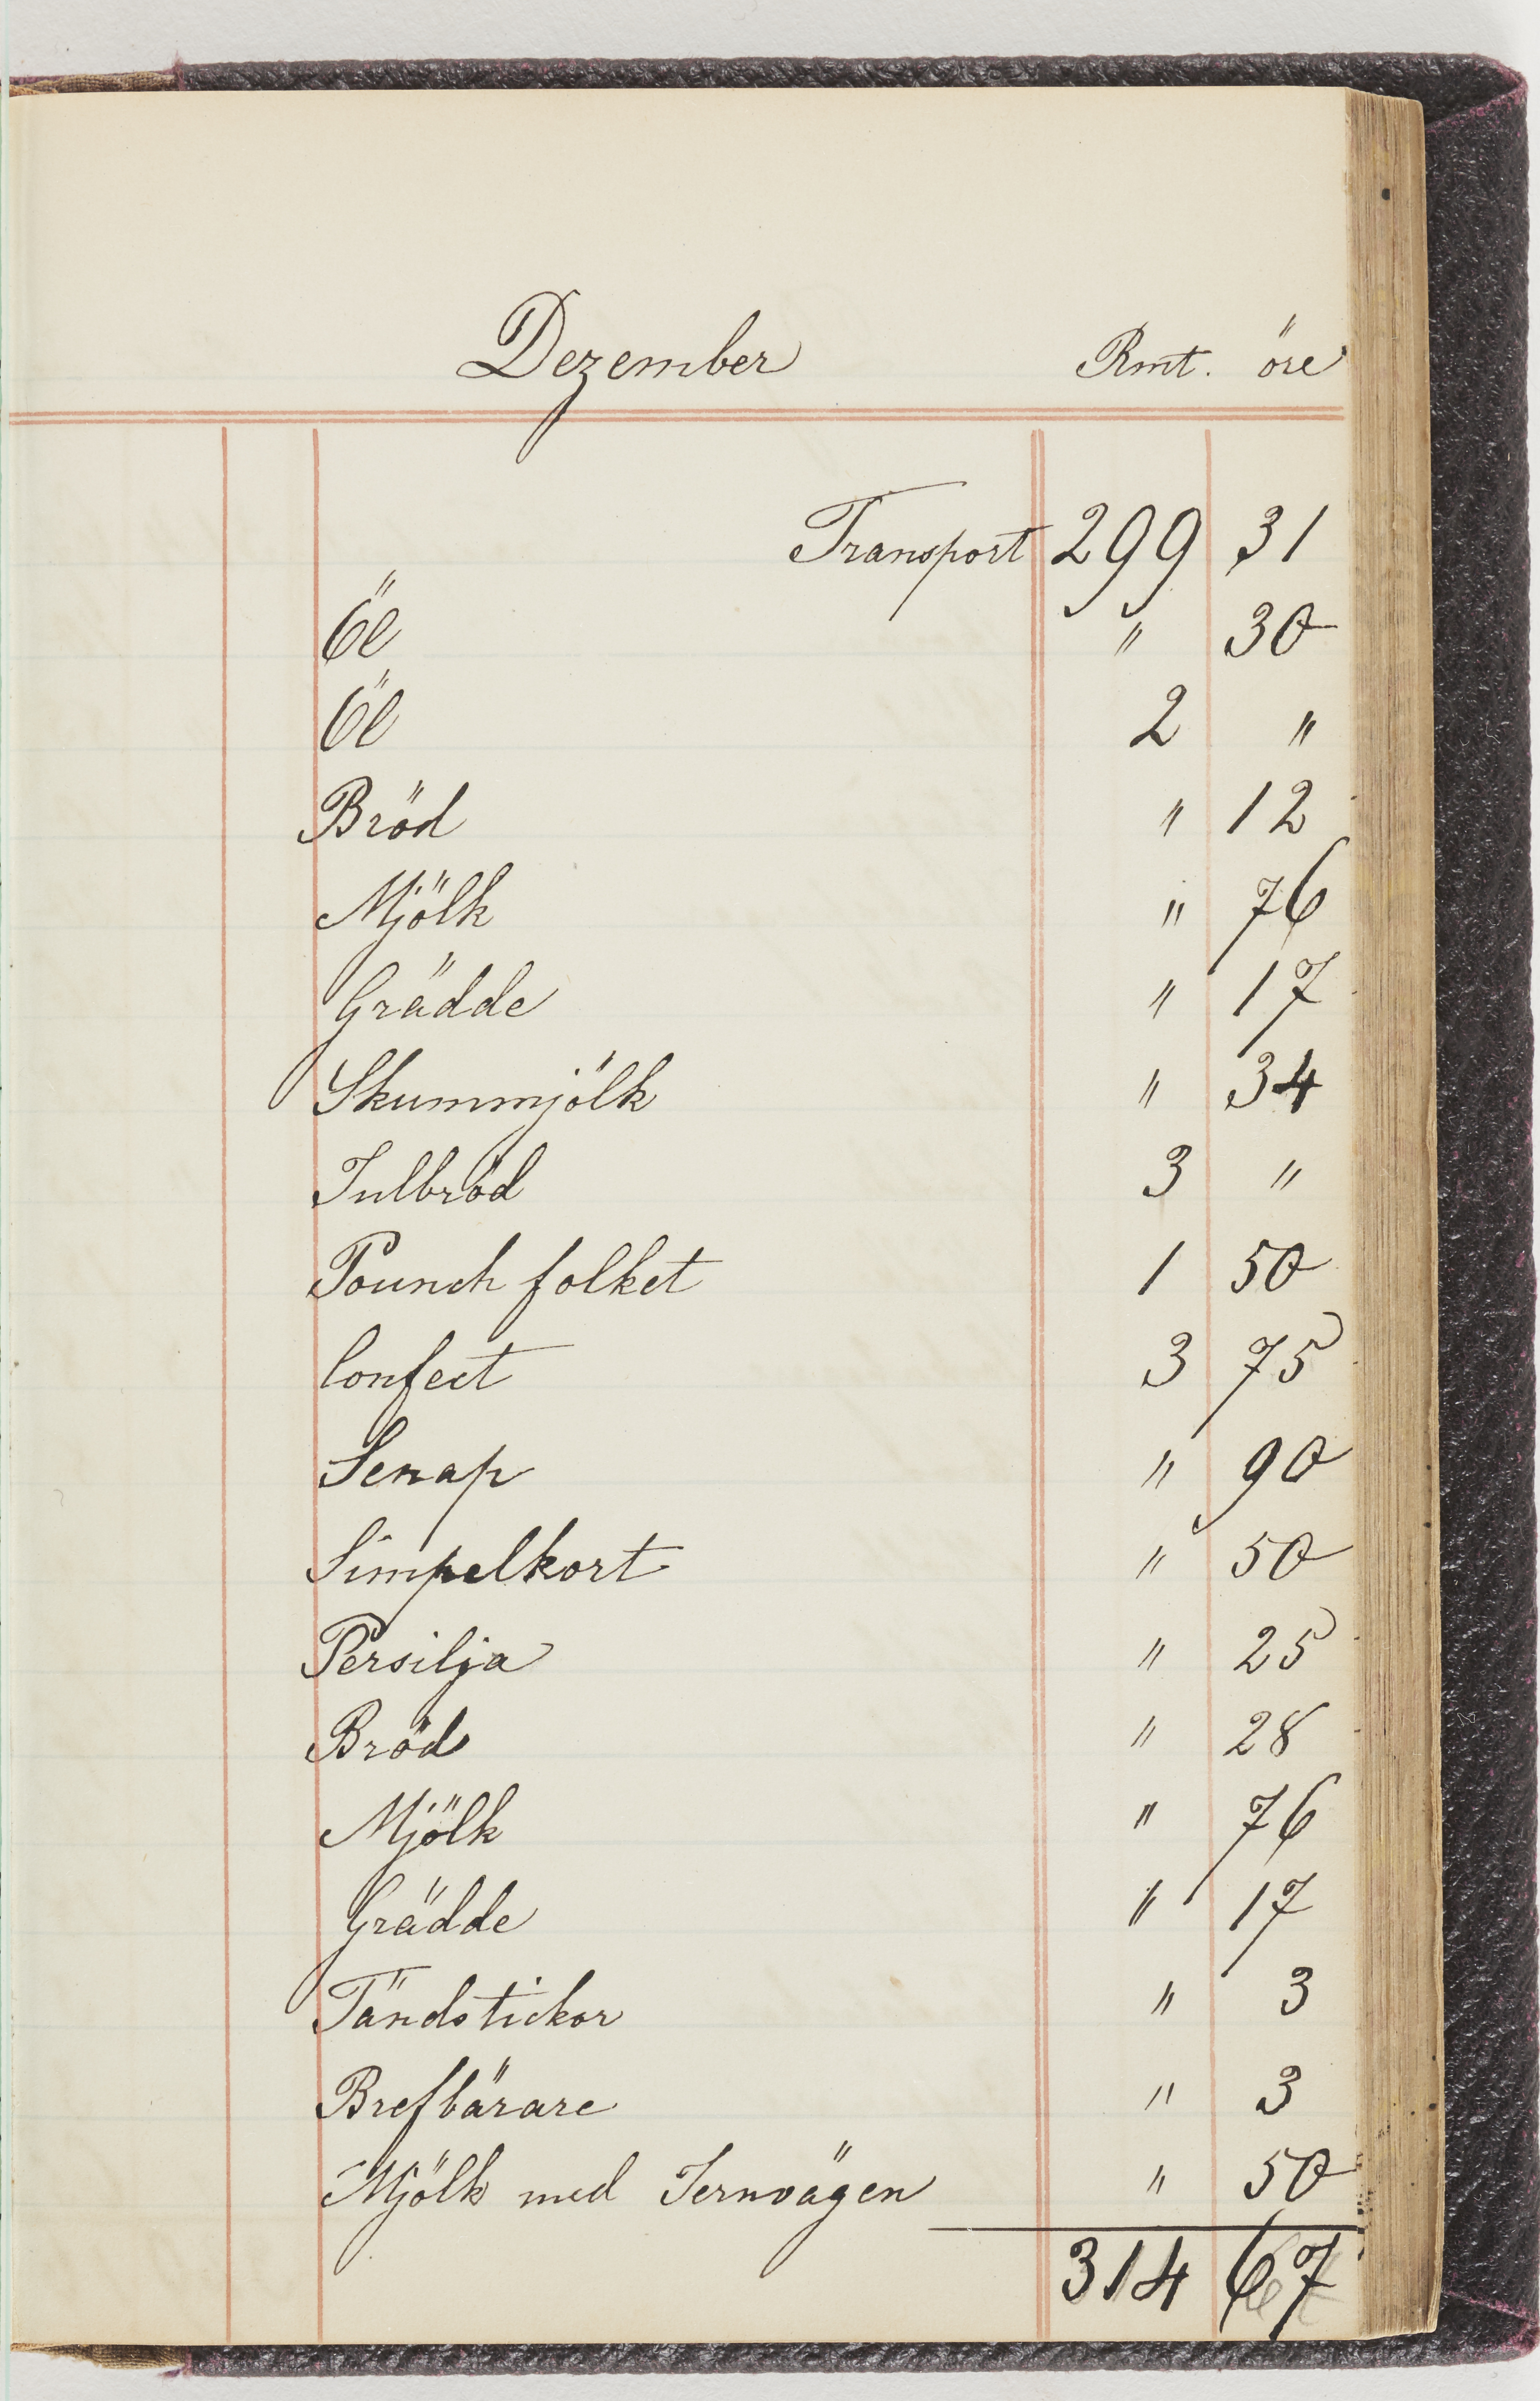 Dezember Rmt. öre
Transport 299 31
Öl " 30
Öl 2 "
Bröd " 12
Mjölk " 76
Grädde " 17
Skummjölk " 34
Julbröd 3 "
Pounch folket 1 50
Confect 3 75
Senap " 90
Simpelkort " 50
Persilja " 25
Bröd " 28
Mjölk " 76
Grädde " 17
Tändstickor " 3
Brefbärare " 3
Mjölk med Jernvägen " 50
314 67